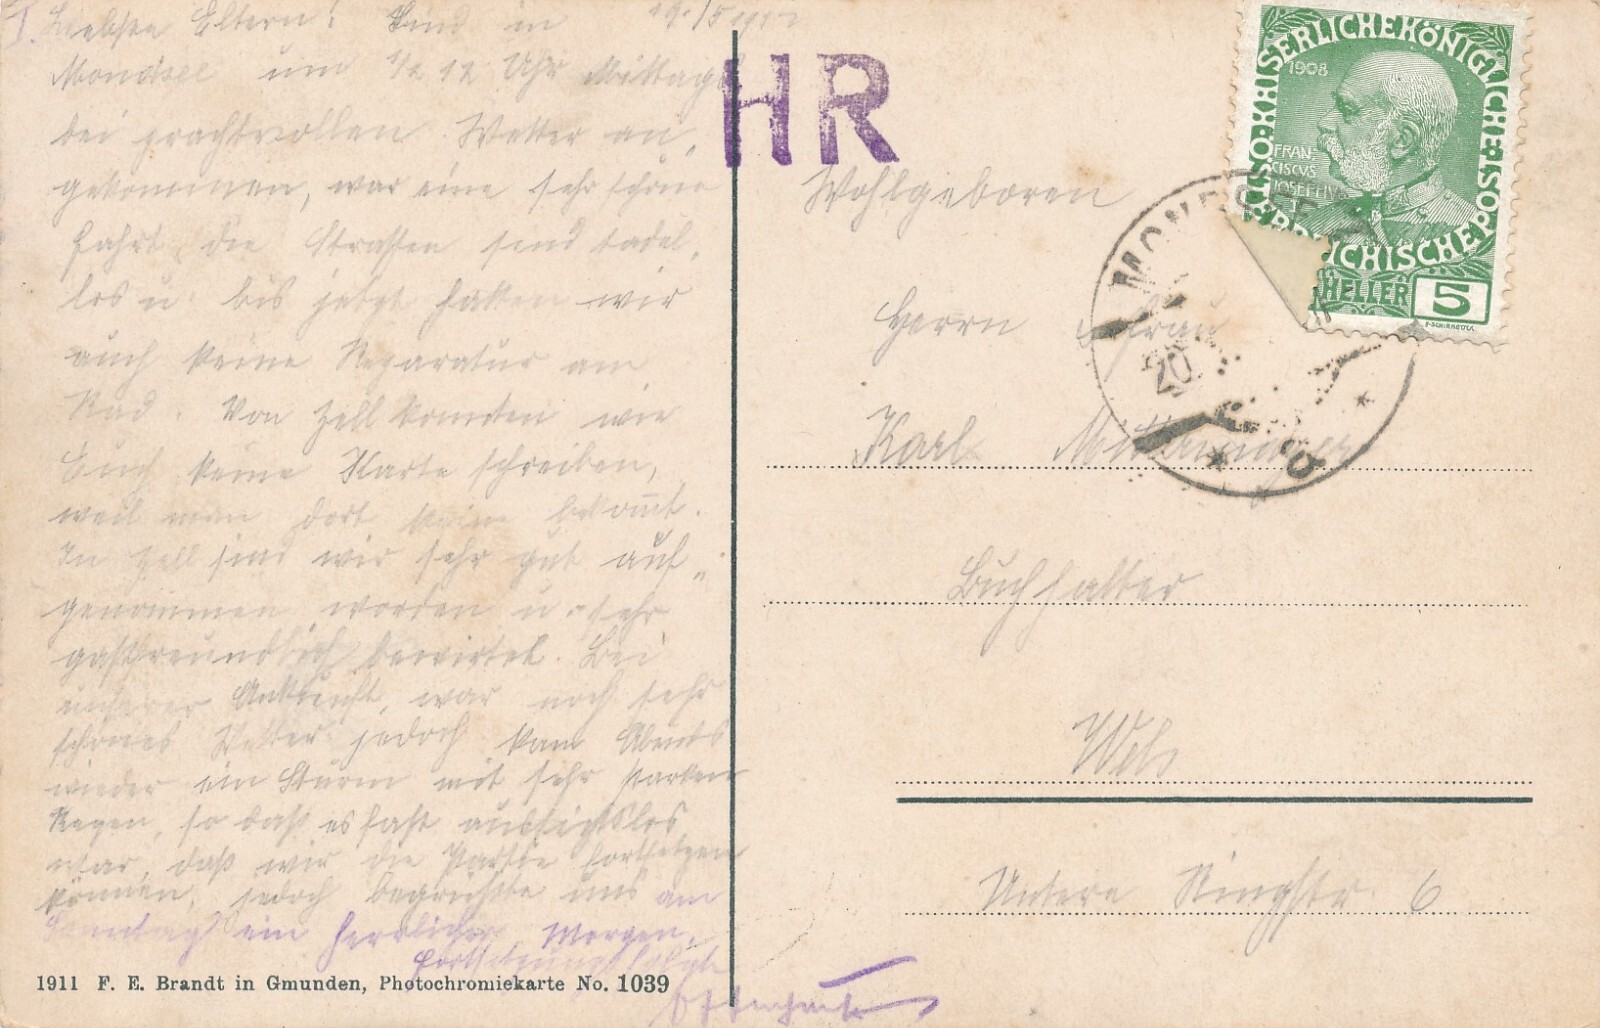 I. Liebste Eltern! Sind in 19./5 1912
Mondsee um 1/2 12 Uhr Mittags
bei prachtvollen Wetter an-
gekommen, war eine sehr schöne
Fahrt, die Strassen sind tadel-
los u. bis jetzt hatten wir
auch keine Reparatur am
Rad. Von Zell konnten wir
Euch keine Karte schreiben,
weil man dort kein bekomt.
In Zell sind wir sehr gut auf-
genommen worden u. sehr
gastfreundlich bewirtet. Bei
unserer Ankunft, war noch sehr
schönes Wetter jedoch kam Abends
wieder ein Sturm mit sehr starken
Regen, so daß es fast aussichtslos
war, daß wir die Partie fortsetzen
können, jedoch begrüsste uns am
Sonntag ein herrlicher Morgen.
Fortsetzung folgt
1911 F. E. Brandt in Gmunden, Photochromiekarte No. 1039
HR
Wohlgeboren
Herrn u. Frau
Karl
Buchhalter
Wels
Untere Ringstr. 6
KAISERLICHEKÖNIGLICHE ÖSTERREICHISCHE POST
1908
FRAN-
CISCVS
JOSEFIVS
HELLER 5
MONDSEE
20